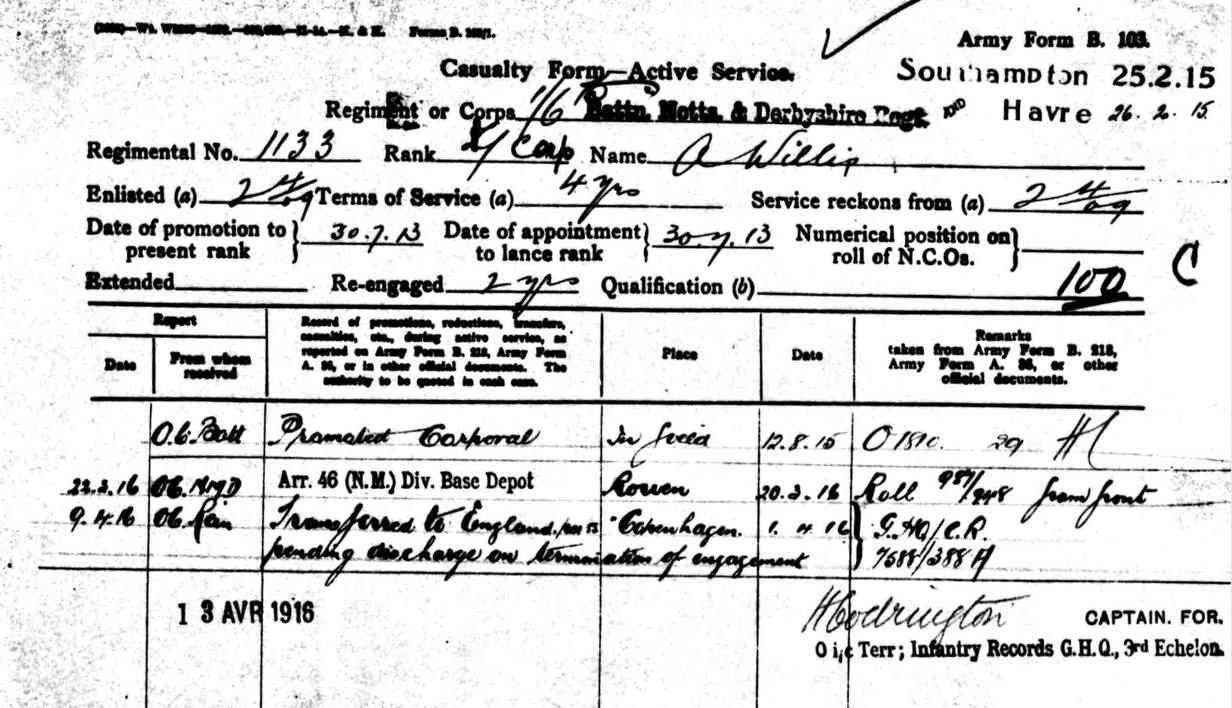 Army Form B. 103.
Casualty Form—Active Service.
Southampton 25.2.15
Regiment or Corps 1/6 Battn. Notts. & Derbyshire Regt. AND Havre 26.2.15.
Regimental No. 1133 Rank L/Corp Name A Willis
Enlisted (a) 2/4/09 Terms of Service (a) 4 yrs Service reckons from (a) 2/4/09
Date of promotion to present rank } 30.7.13 Date of appointment to lance rank } 30.7.13 Numerical position on roll of N.C.Os. }
Extended Re-engaged 2 yrs Qualification (b) 100 C
Report
Date
From whom received
Record of promotions, reductions, transfers, casualties, etc., during active service, as reported on Army Form B. 213, Army Form A. 36, or in other official documents. The authority to be quoted in each case.
Place
Date
Remarks
taken from Army Form B. 213, Army Form A. 36, or other official documents.
O.C. Batt Promoted Corporal In field 12.8.15 29
22.3.16 OC Arr. 46 (N.M.) Div. Base Depot Rouen 20.3.16 Roll from front
9.4.16 OC Transferred to England, per "Copenhagen. 1.4.16 } G.HQ/C.R.
pending discharge on termination of engagement 7588/388A
13 AVR 1916
HCodrington CAPTAIN. FOR.
O i/c Terr; Infantry Records G.H.Q., 3rd Echelon.